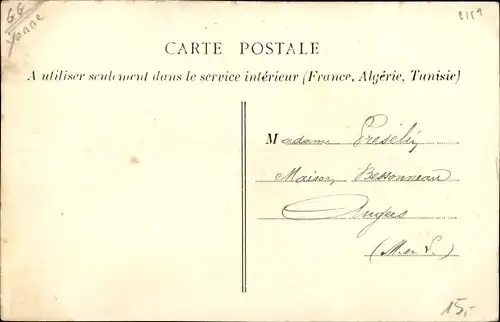 GG
Yonne
2159
CARTE POSTALE
A utiliser seulement dans le service intérieur (France, Algérie, Tunisie)
Madame
Maison Bessonneau
Angers
(M. et L.)
15,-